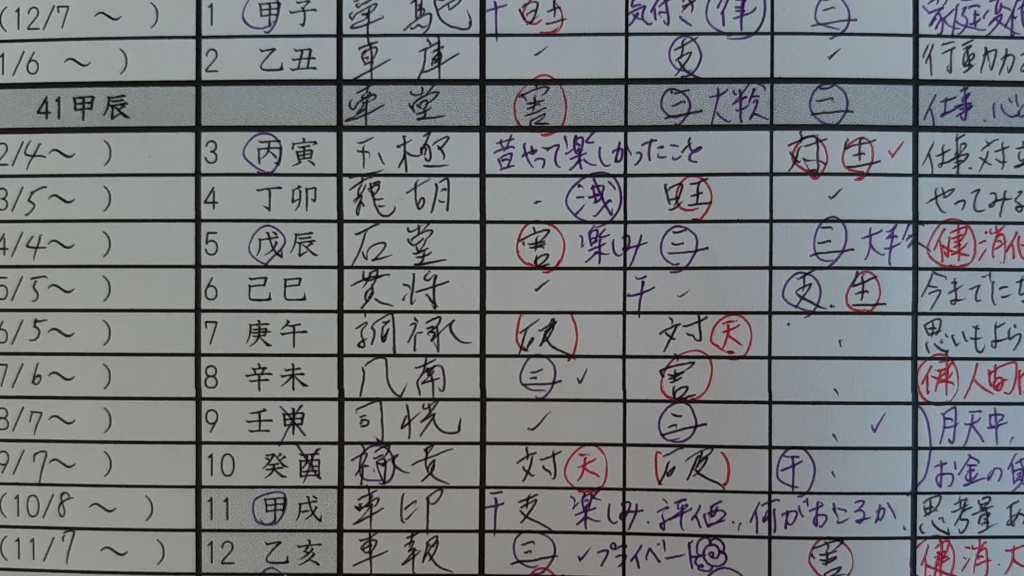 (12/7 ~ ) 1 甲子 車 干 気付き 律 三
1/6 ~ ) 2 乙丑 車庫 支 行動力
41甲辰 車堂 害 三 大半 三 仕事、心
2/4~ ) 3 丙寅 玉極 昔やって楽しかったこと 対 生 仕事、対立
3/5~ ) 4 丁卯 龍胡 浅 やってみる
4/4~ ) 5 戊辰 石堂 害 楽しみ 三 三 大半 健 消化
5/5~ ) 6 己巳 貫将 干 支、生 今までに
6/5~ ) 7 庚午 調禄 破 対 天 思いもよら
7/6~ ) 8 辛未 南 三 害 健 人間
8/7~ ) 9 壬申 司 三 月天中、
9/7~ ) 10 癸酉 禄貢 対 天 破 干 お金の
(10/8 ~ ) 11 甲戌 車印 干支 楽しみ、評価、何がおこるか、思考
(11/7 ~ ) 12 乙亥 車報 三 プライベート 害 健 消、大